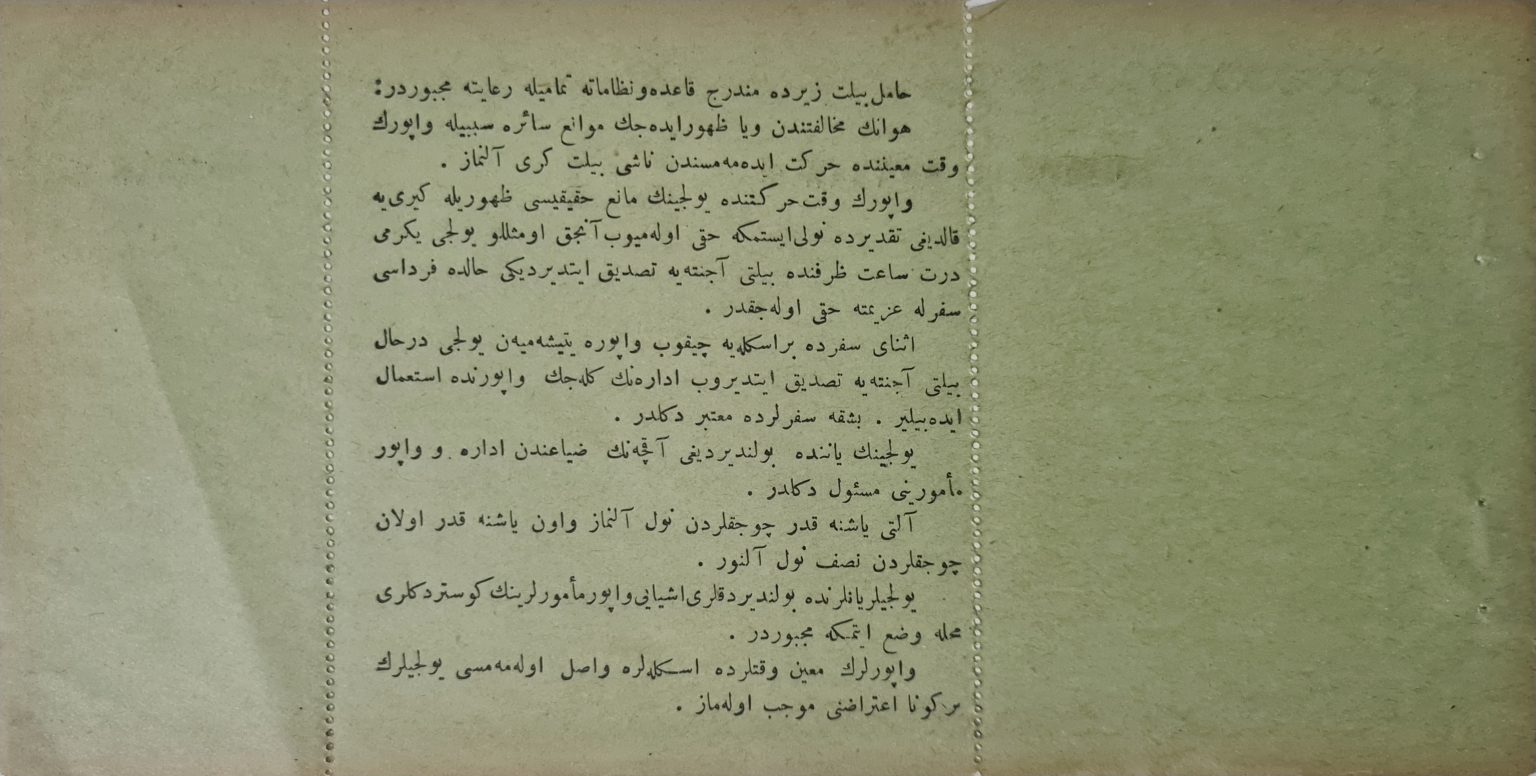 حامل بيلت زيرده مندرج قاعده ونظاماته تماميله رعايته مجبوردر:
هوانك مخالفتندن ويا ظهور ايده جك موانع سائره سببيله واپورك
وقت معيننده حركت ايده مه مسندن ناشى بيلت كرى آلنماز .
واپورك وقت حركتنده يولجينك مانع حقيقيسى ظهوريله كيرى يه
قالديغى تقديرده نولى ايستمكه حقى اوله ميوب آنجق اومثللو يولجى يكرمى
درت ساعت ظرفنده بيلتى آجنته يه تصديق ايتديرديكى حالده فرداسى
سفرله عزيمته حقى اوله جقدر .
اثناى سفرده براسكله يه چيقوب واپوره يتيشه ميه ن يولجى درحال
بيلتى آجنته يه تصديق ايتديروب اداره نك كله جك واپورنده استعمال
ايده بيلير . بشقه سفرلرده معتبر دكلدر .
يولجينك ياننده بولنديرديغى آقچه نك ضياعندن اداره و واپور
مأمورينى مسئول دكلدر .
آلتى ياشنه قدر چوجقلردن نول آلنماز واون ياشنه قدر اولان
چوجقلردن نصف نول آلنور .
يولجيلر يانلرنده بولنديردقلرى اشيايى واپور مأمورلرينك كوستردكلرى
محله وضع ايتمكه مجبوردر .
واپورلرك معين وقتلرده اسكله لره واصل اوله مه مسى يولجيلرك
بركونا اعتراضنى موجب اوله ماز .